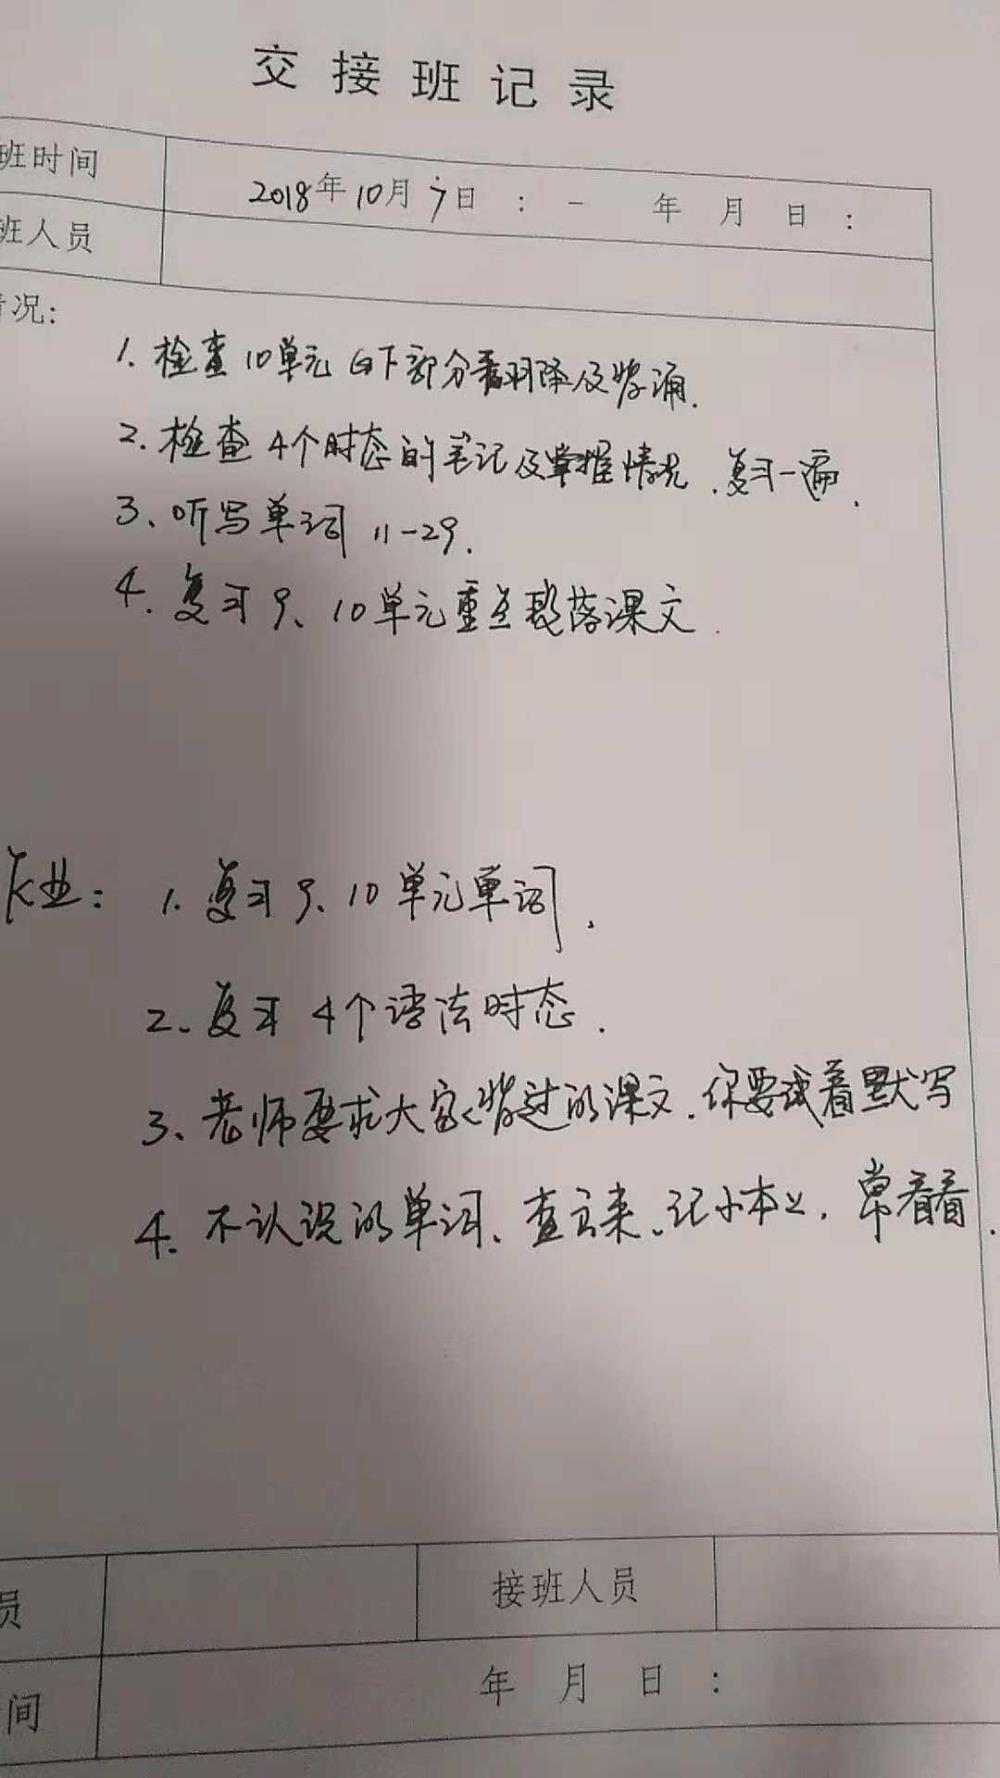 交接班记录
班时间 2018年10月7日 : - 年 月 日 :
班人员
情况:
1. 检查10单元 下部分 翻译及背诵.
2. 检查 4个时态的笔记及掌握情况. 复习一遍.
3、听写单词 11-29.
4. 复习9、10单元重点段落课文.
作业: 1. 复习9、10单元单词.
2. 复习 4个语法时态.
3、老师要求大家背过的课文. 你要试着默写
4. 不认识的单词、查出来、记小本上, 常看看.
员 接班人员
间 年 月 日 :